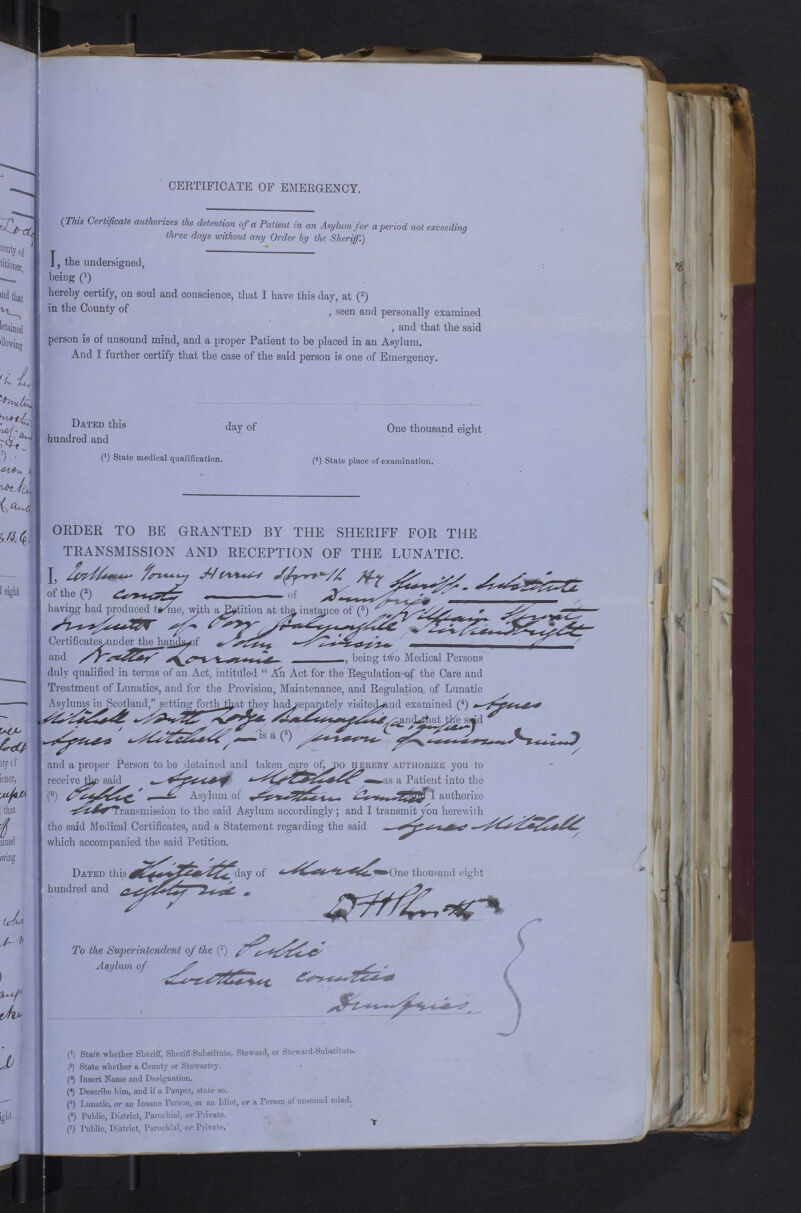 CERTIFICATE OF EMERGENCY.
(This Certificate authorizes the detention of a Patient in an Asylum for a period not exceeding
three days without any Order by the Sheriff.)
I, the undersigned,
being (1)
hereby certify, on soul and conscience, that I have this day, at (2)
in the County of , seen and personally examined
, and that the said
person is of unsound mind, and a proper Patient to be placed in an Asylum.
And I further certify that the case of the said person is one of Emergency.
DATED this day of One thousand eight
hundred and
(1) State medical qualification. (2) State place of examination.
ORDER TO BE GRANTED BY THE SHERIFF FOR THE
TRANSMISSION AND RECEPTION OF THE LUNATIC.
I, William Young Herries Sheriff-Substitute
of the (2) County of Dumfries
having had produced to me, with a Petition at the instance of (3) William
Inspector of Poor Balmaghie Kirkcudbright
Certificates under the hands of John
and Walter Lorraine, being two Medical Persons
duly qualified in terms of an Act, intituled “ An Act for the Regulation of the Care and
Treatment of Lunatics, and for the Provision, Maintenance, and Regulation of Lunatic
Asylums in Scotland,” setting forth that they had separately visited and examined (4) Agnes
Mitchell North Lodge Balmaghie (a Pauper) and that the said
Agnes Mitchell, is a (5) person of unsound mind,
and a proper Person to be detained and taken care of, DO HEREBY AUTHORIZE you to
receive the said Agnes Mitchell as a Patient into the
(6) Public Asylum of Southern Counties and I authorize
her Transmission to the said Asylum accordingly; and I transmit you herewith
the said Medical Certificates, and a Statement regarding the said Agnes Mitchell,
which accompanied the said Petition.
DATED this Thirtieth day of March One thousand eight
hundred and eighty six.
To the Superintendent of the (7) Public
Asylum of
Southern Counties
Dumfries.
(1) State whether Sheriff, Sheriff-Substitute, Steward, or Steward-Substitute.
(2) State whether a County or Stewartry.
(3) Insert Name and Designation.
(4) Describe him, and if a Pauper, state so.
(5) Lunatic, or an Insane Person, or an Idiot, or a Person of unsound mind.
(6) Public, District, Parochial, or Private.
(7) Public, District, Parochial, or Private.
Y